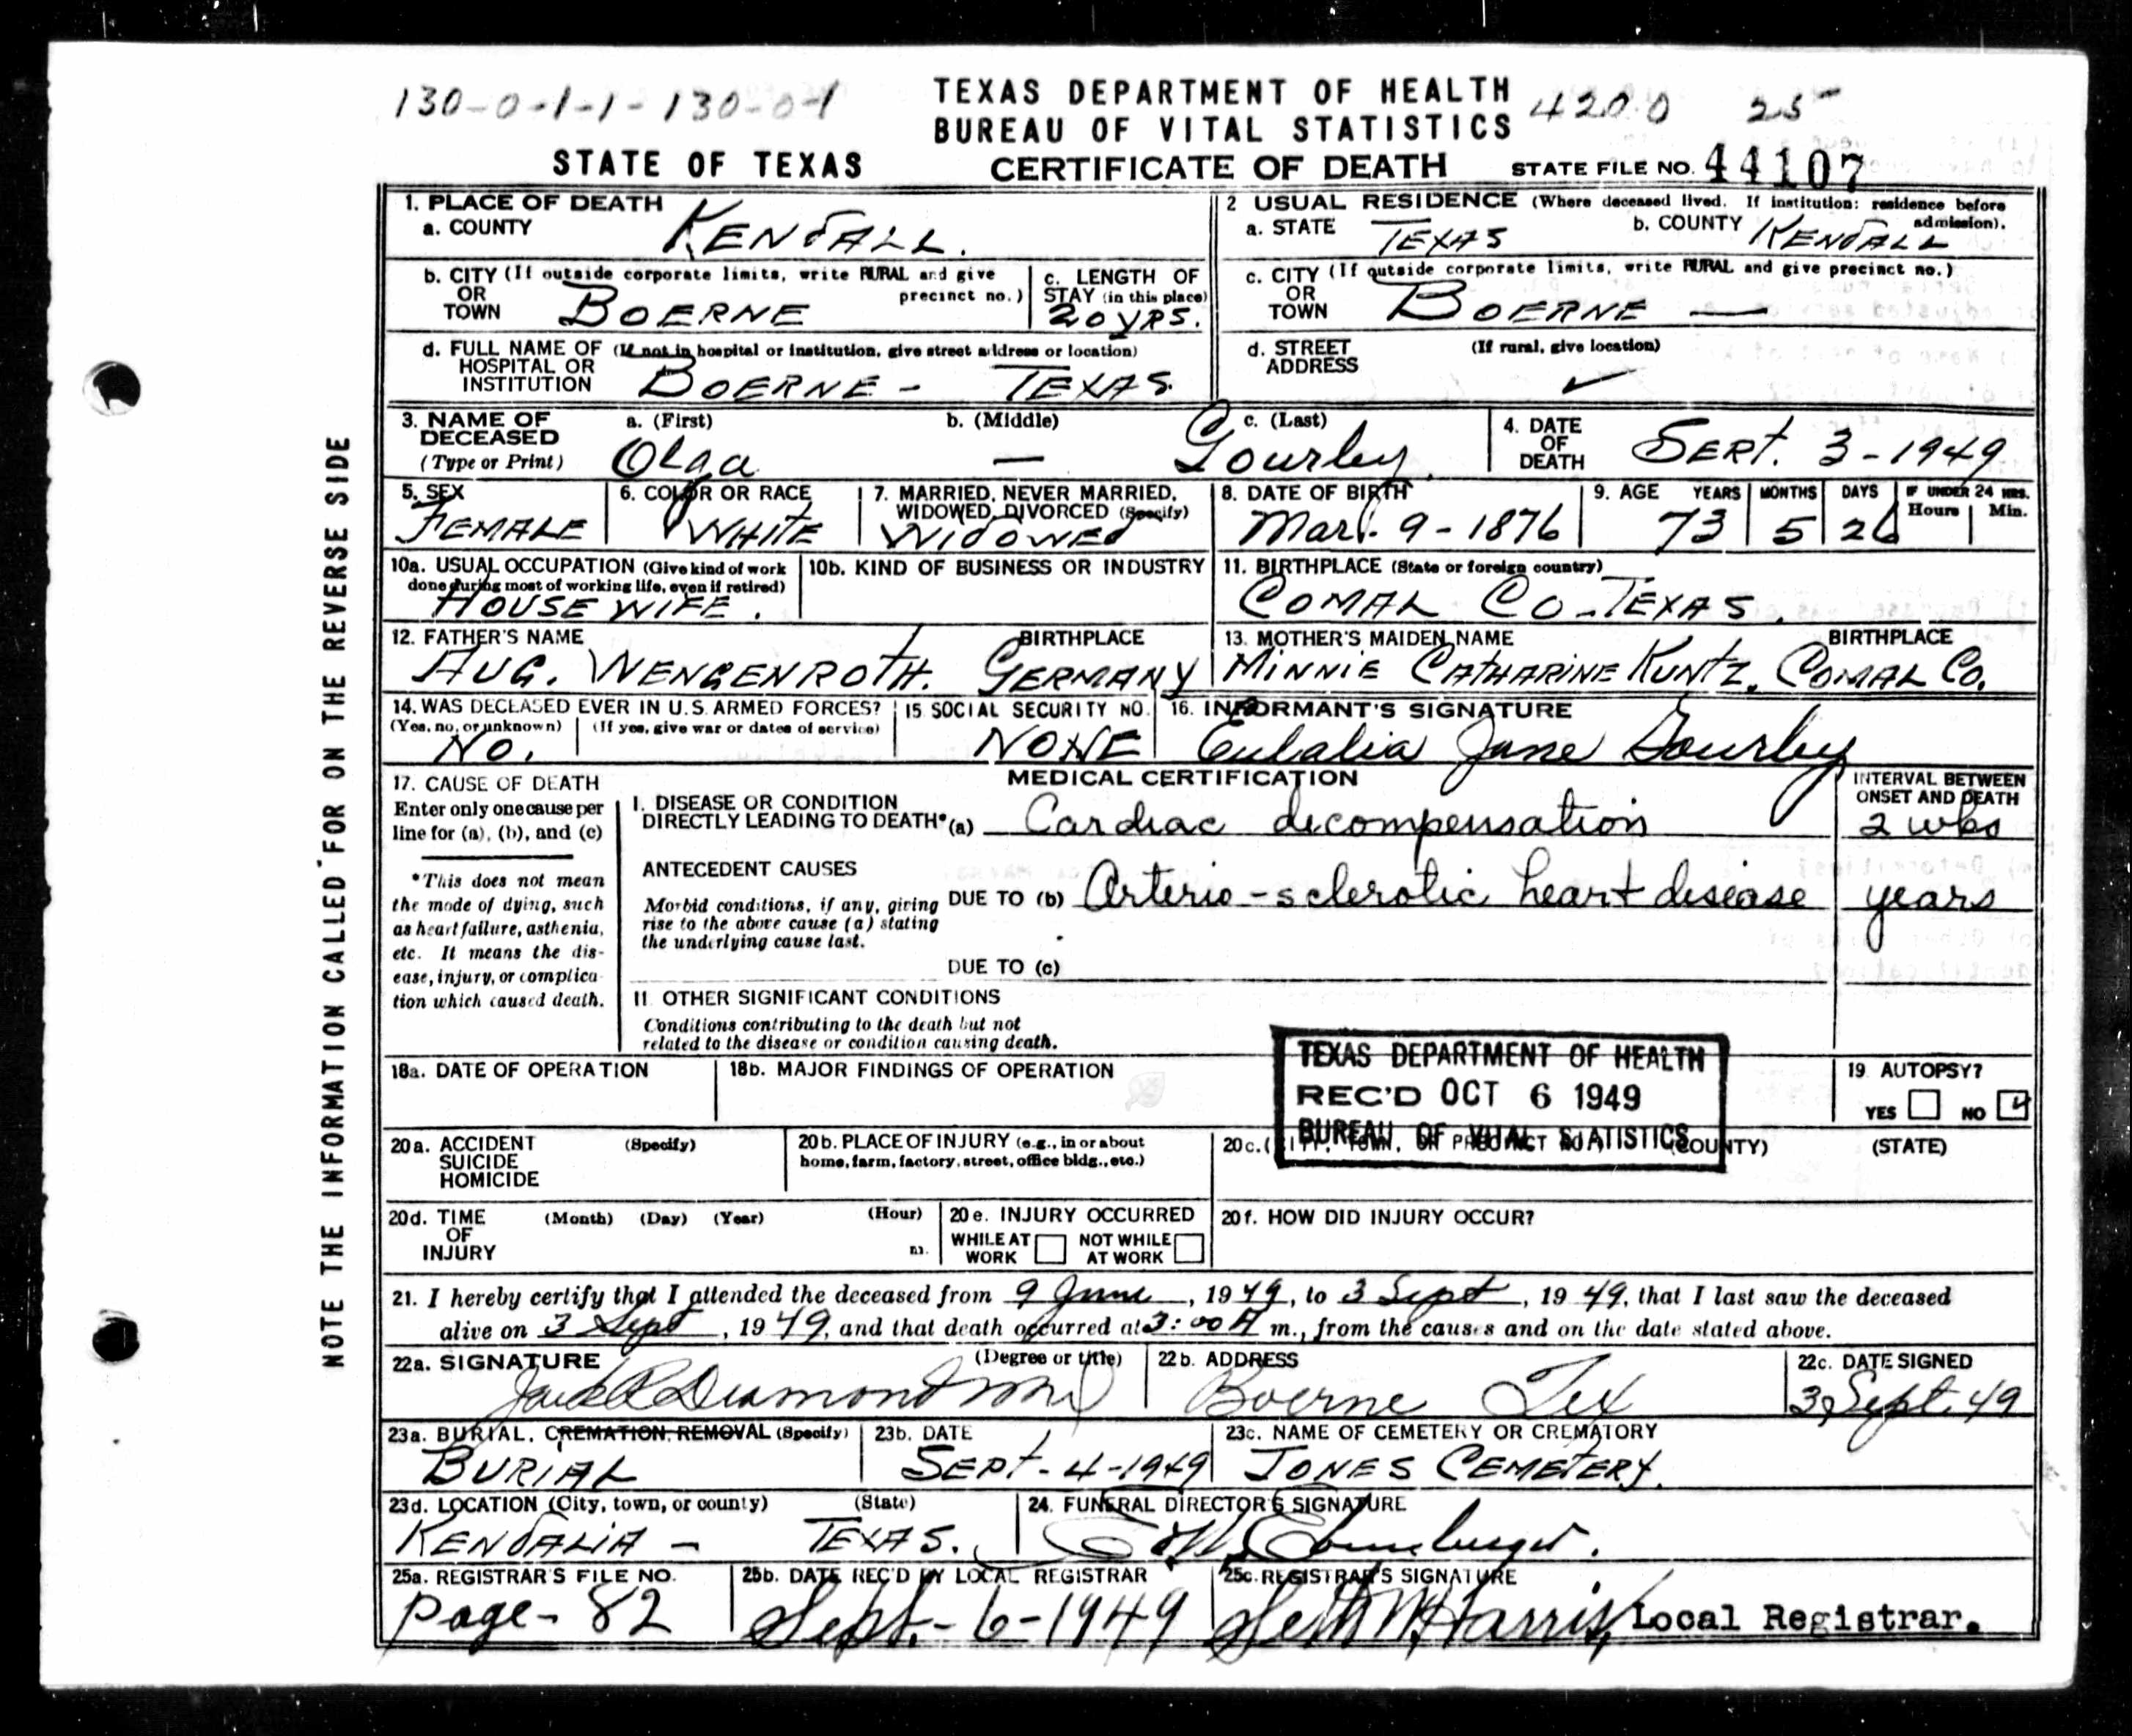 130-0-1-1-130-0-1
TEXAS DEPARTMENT OF HEALTH
4200 25
BUREAU OF VITAL STATISTICS
STATE OF TEXAS CERTIFICATE OF DEATH STATE FILE NO. 44107
NOTE THE INFORMATION CALLED FOR ON THE REVERSE SIDE
1. PLACE OF DEATH
a. COUNTY KENDALL.
2 USUAL RESIDENCE (Where deceased lived. If institution: residence before admission).
a. STATE TEXAS b. COUNTY KENDALL
b. CITY (If outside corporate limits, write RURAL and give precinct no.)
OR TOWN BOERNE
c. LENGTH OF STAY (in this place)
20 YRS.
c. CITY (If outside corporate limits, write RURAL and give precinct no.)
OR TOWN BOERNE —
d. FULL NAME OF HOSPITAL OR INSTITUTION (If not in hospital or institution, give street address or location)
BOERNE - TEXAS.
d. STREET ADDRESS (If rural, give location)
✓
3. NAME OF DECEASED (Type or Print)
a. (First) b. (Middle) c. (Last)
Olga — Gourley.
4. DATE OF DEATH SEPT. 3-1949
5. SEX
FEMALE
6. COLOR OR RACE
WHITE
7. MARRIED, NEVER MARRIED, WIDOWED, DIVORCED (Specify)
WIDOWED
8. DATE OF BIRTH
Mar. 9-1876
9. AGE YEARS MONTHS DAYS IF UNDER 24 HRS. Hours Min.
73 5 26
10a. USUAL OCCUPATION (Give kind of work done during most of working life, even if retired)
HOUSE WIFE.
10b. KIND OF BUSINESS OR INDUSTRY
11. BIRTHPLACE (State or foreign country)
COMAL CO-TEXAS.
12. FATHER'S NAME BIRTHPLACE
AUG. WENGENROTH. GERMANY
13. MOTHER'S MAIDEN NAME BIRTHPLACE
MINNIE CATHARINE KUNTZ. COMAL CO.
14. WAS DECEASED EVER IN U.S. ARMED FORCES?
(Yes, no, or unknown) (If yes, give war or dates of service)
NO.
15 SOCIAL SECURITY NO.
NONE
16. INFORMANT'S SIGNATURE
Eulalia Jane Gourley
17. CAUSE OF DEATH
Enter only one cause per
line for (a), (b), and (c)
*This does not mean
the mode of dying, such
as heart failure, asthenia,
etc. It means the dis-
ease, injury, or complica
tion which caused death.
MEDICAL CERTIFICATION
INTERVAL BETWEEN ONSET AND DEATH
I. DISEASE OR CONDITION
DIRECTLY LEADING TO DEATH* (a) Cardiac decompensation 2 wks
ANTECEDENT CAUSES
Morbid conditions, if any, giving
rise to the above cause (a) stating
the underlying cause last.
DUE TO (b) Arterio-sclerotic heart disease years
DUE TO (c)
II. OTHER SIGNIFICANT CONDITIONS
Conditions contributing to the death but not
related to the disease or condition causing death.
TEXAS DEPARTMENT OF HEALTH
REC'D OCT 6 1949
BUREAU OF VITAL STATISTICS
18a. DATE OF OPERATION
18b. MAJOR FINDINGS OF OPERATION
19. AUTOPSY?
YES NO
20a. ACCIDENT SUICIDE HOMICIDE (Specify)
20b. PLACE OF INJURY (e.g., in or about
home, farm, factory, street, office bldg., etc.)
20c. (CITY, TOWN, OR PRECINCT NO.) (COUNTY) (STATE)
20d. TIME OF INJURY (Month) (Day) (Year) (Hour) m.
20e. INJURY OCCURRED
WHILE AT WORK NOT WHILE AT WORK
20f. HOW DID INJURY OCCUR?
21. I hereby certify that I attended the deceased from 9 June, 1949, to 3 Sept, 1949, that I last saw the deceased
alive on 3 Sept, 1949, and that death occurred at 3:00 A m., from the causes and on the date stated above.
22a. SIGNATURE (Degree or title)
Diamond MD
22b. ADDRESS
Boerne Tex
22c. DATE SIGNED
3 Sept. 49
23a. BURIAL, CREMATION, REMOVAL (Specify)
BURIAL
23b. DATE
SEPT-4-1949
23c. NAME OF CEMETERY OR CREMATORY
JONES CEMETERY.
23d. LOCATION (City, town, or county) (State)
KENDALIA - TEXAS.
24. FUNERAL DIRECTOR'S SIGNATURE
25a. REGISTRAR'S FILE NO.
page- 82
25b. DATE REC'D BY LOCAL REGISTRAR
Sept.-6-1949
25c. REGISTRAR'S SIGNATURE
Harris, Local Registrar.